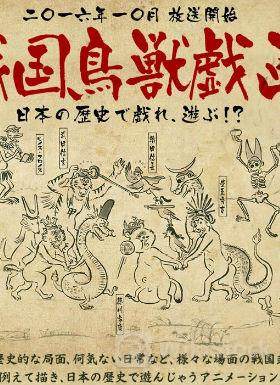 二〇一六年一〇月 放送開始
戦国鳥獣戯画
日本の歴史で戯れ、遊ぶ!?
歴史的な局面、何気ない日常など、様々な場面の戦国武
例えて描き、日本の歴史で遊んじゃうアニメーション